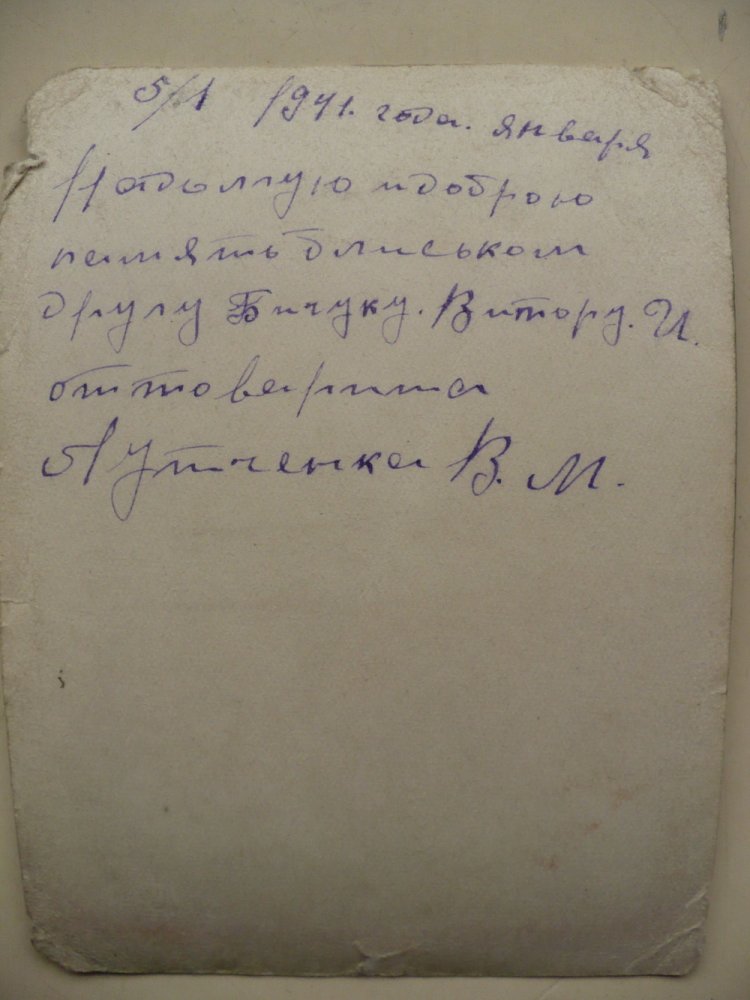 5/1 1941. года. января
Надолгую идоброю
память блиськом
другу Бичуку. Витору. И.
оттоварища
Лутченка В. М.